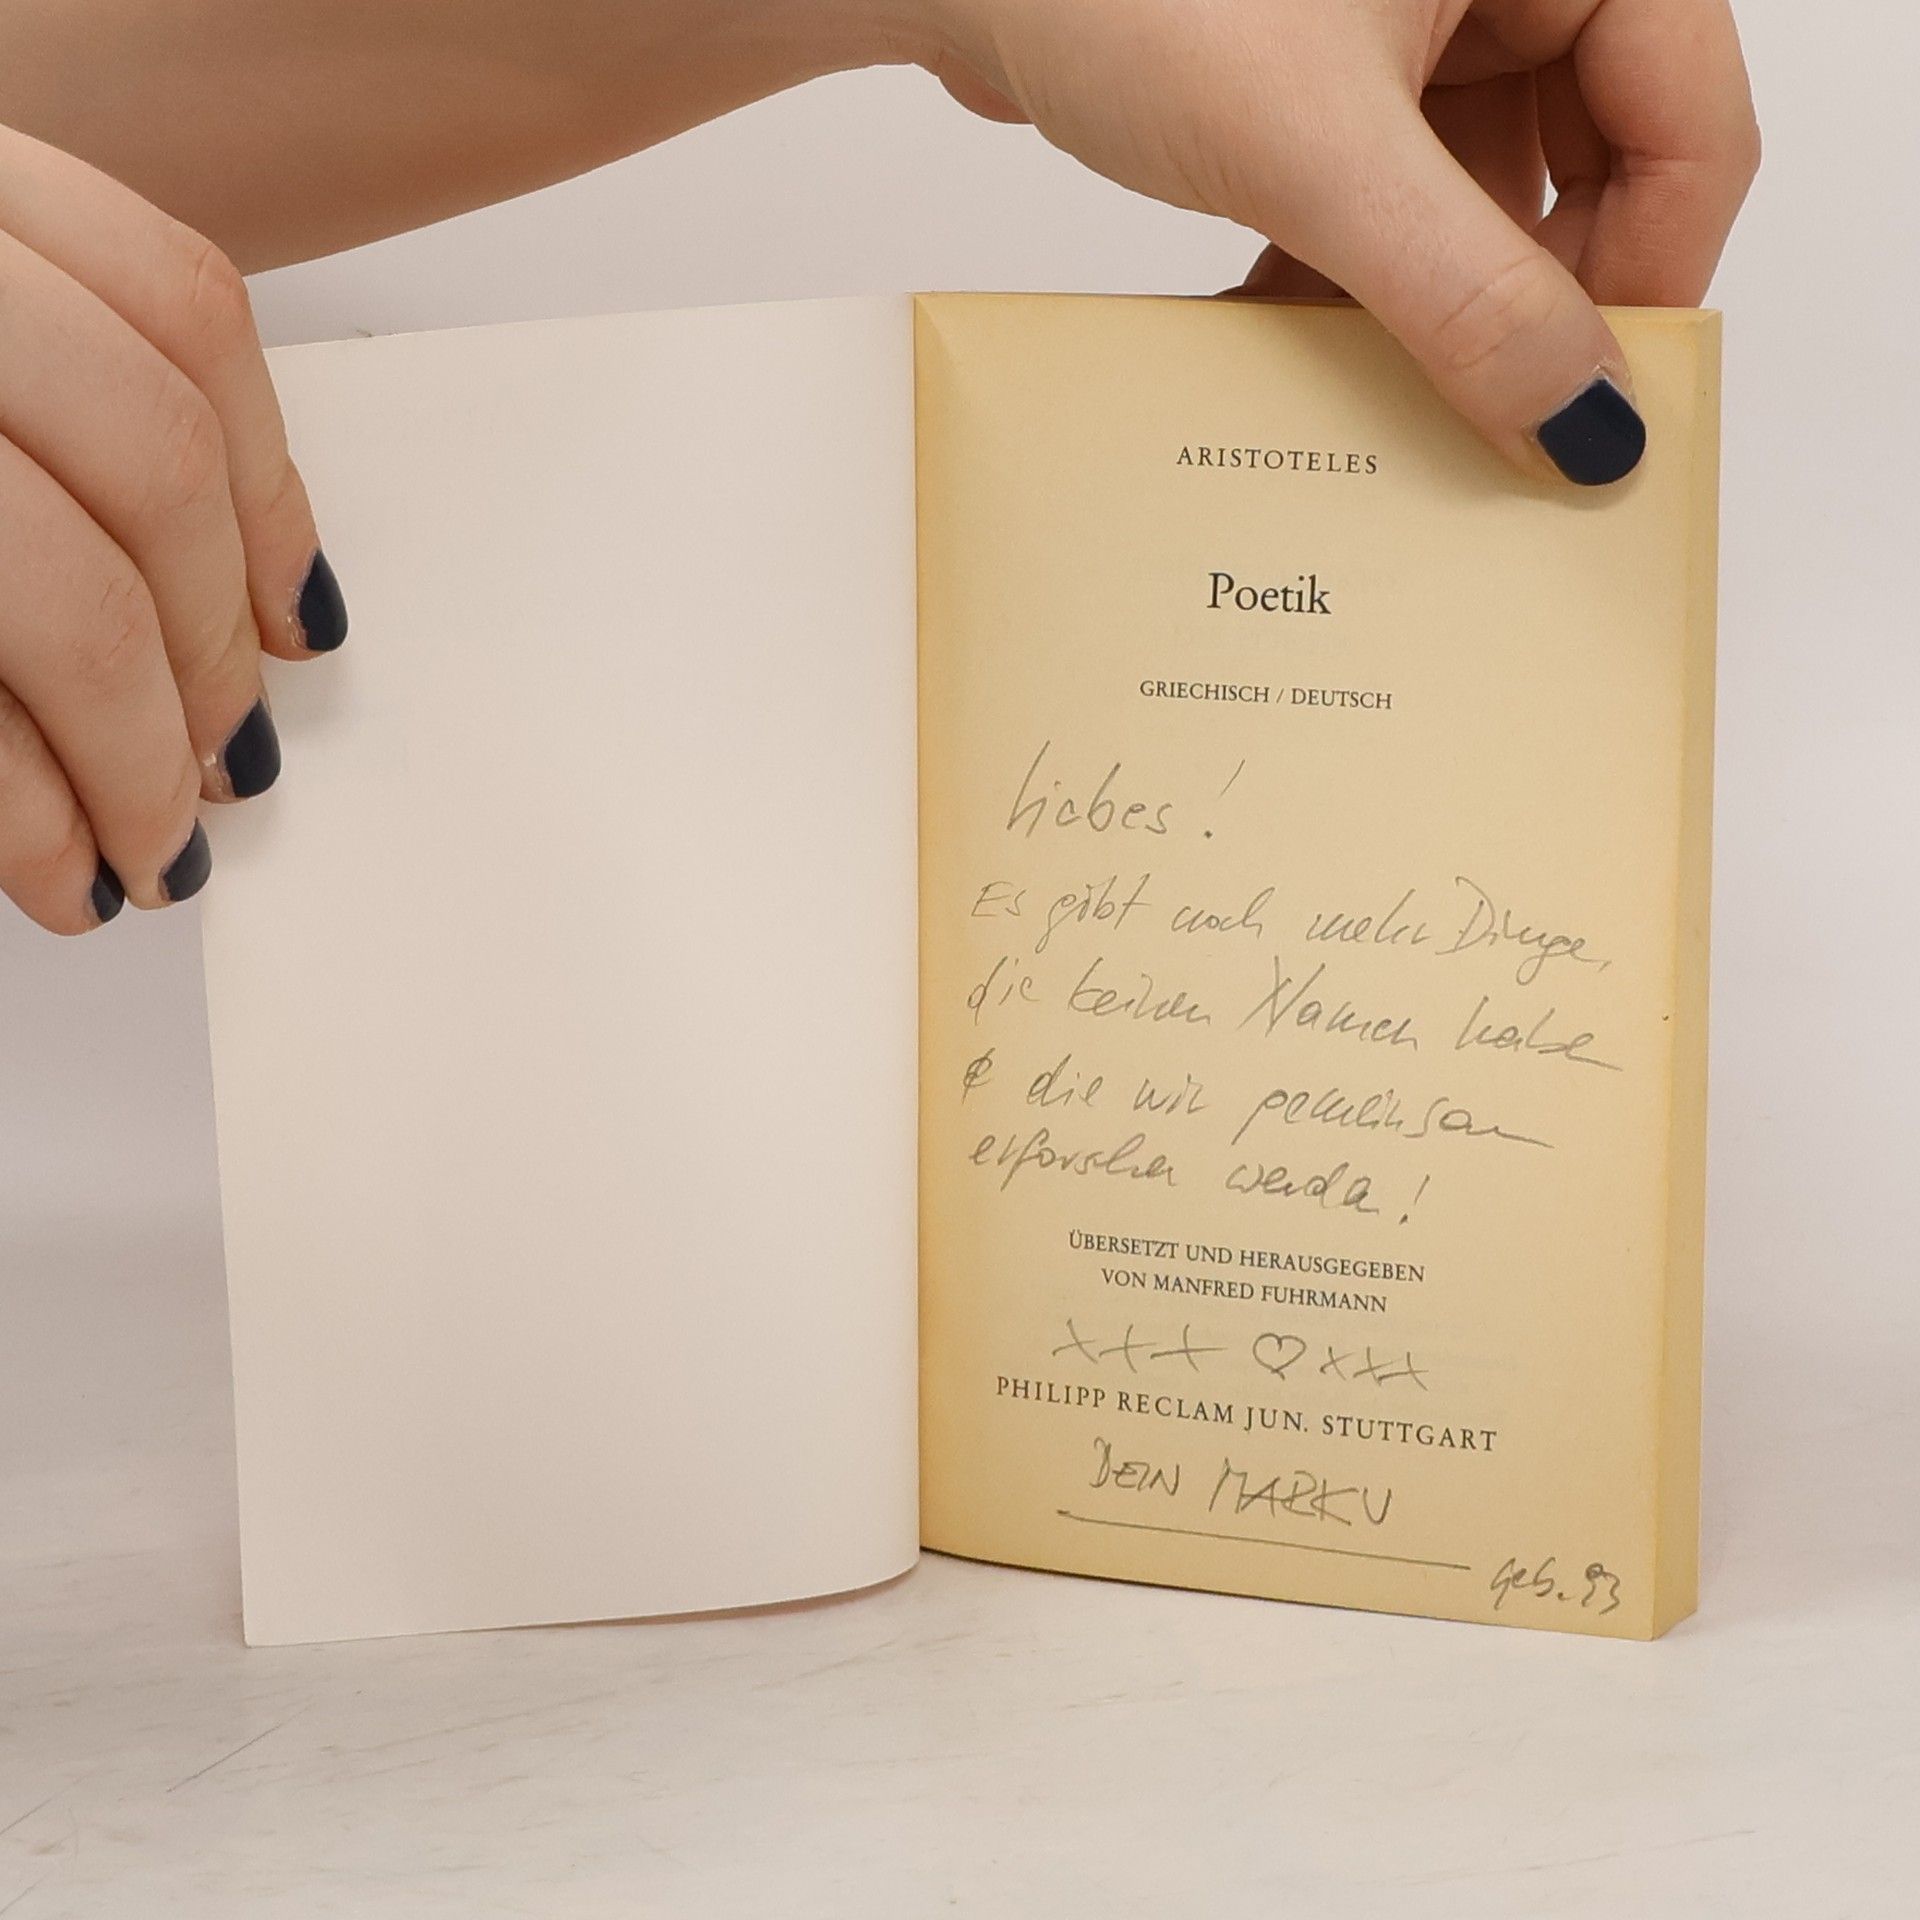 ARISTOTELES
Poetik
GRIECHISCH / DEUTSCH
Liebes!
Es gibt noch mehr Dinge,
die keinen Namen haben
& die wir gemeinsam
erforschen werden!
ÜBERSETZT UND HERAUSGEGEBEN
VON MANFRED FUHRMANN
xxx ♡ xxx
PHILIPP RECLAM JUN. STUTTGART
DEIN MARKU
Geb. 93